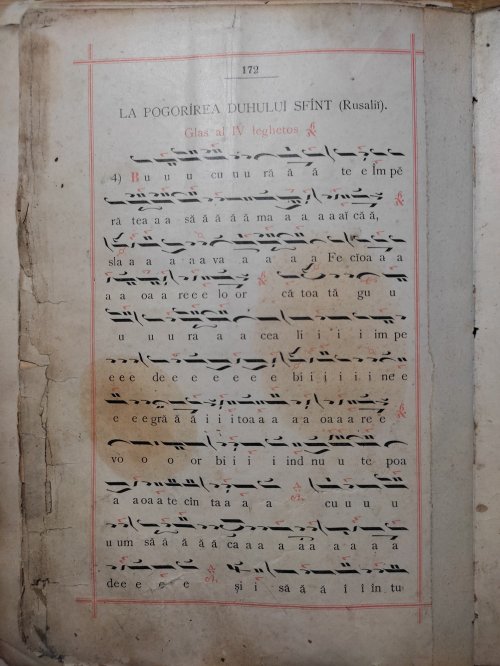 172
LA POGORÎREA DUHULUĬ SFÎNT (Rusaliĭ).
Glas al IV leghetos
4) B u u u cu u u ră ă ă te e Îm pĕ
ră tea a a să ă ă ă ă ma a a a a aĭ că ă,
sla a a a a a va a a a a Fe cĭoa a a
a a oa a re e e lo or că toa tă gu u
u u u ra a a cea li i i i im pe
e e e de e e e e e bi i i i i i ne e
e e e gră ă ă i i i toa a a a a oa a a re e
vo o o or bi i i i ind nu u te poa
a aoa a te cîn ta a a a cu u u u
u um să ă ă ă ă ca a a a a a a a a
de e e e e și i să ă ă î î în tu